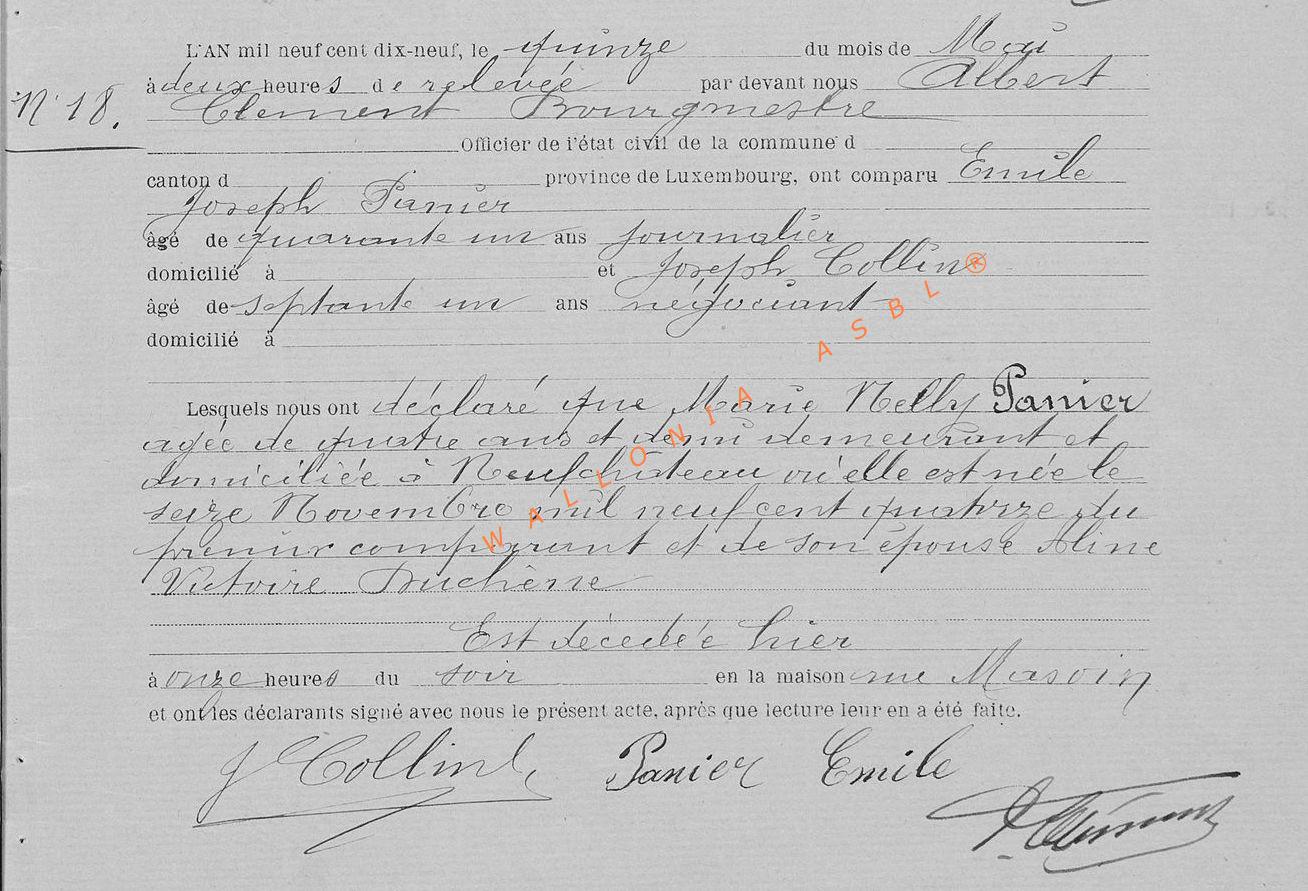 L'AN mil neuf cent dix-neuf, le quinze du mois de Mai
à deux heures de relevée par devant nous Albert
N° 18. Clement Bourgmestre
Officier de l'état civil de la commune d
canton d province de Luxembourg, ont comparu Emile
Joseph Panier
âgé de quarante un ans journalier
domicilié à et Joseph Collin
âgé de septante un ans négociant
domicilié à
Lesquels nous ont déclaré que Marie Nelly Panier
agée de quatre ans et demi demeurant et
domiciliée à Neufchâteau où elle est née le
seize Novembre mil neuf cent quatorze du
premier comparant et de son épouse Aline
Victoire Duchêne
Est décédée hier
à onze heures du soir en la maison rue Masoin
et ont les déclarants signé avec nous le présent acte, après que lecture leur en a été faite.
J Collin Panier Emile
A. Clément
WALLONIA ASBL ®